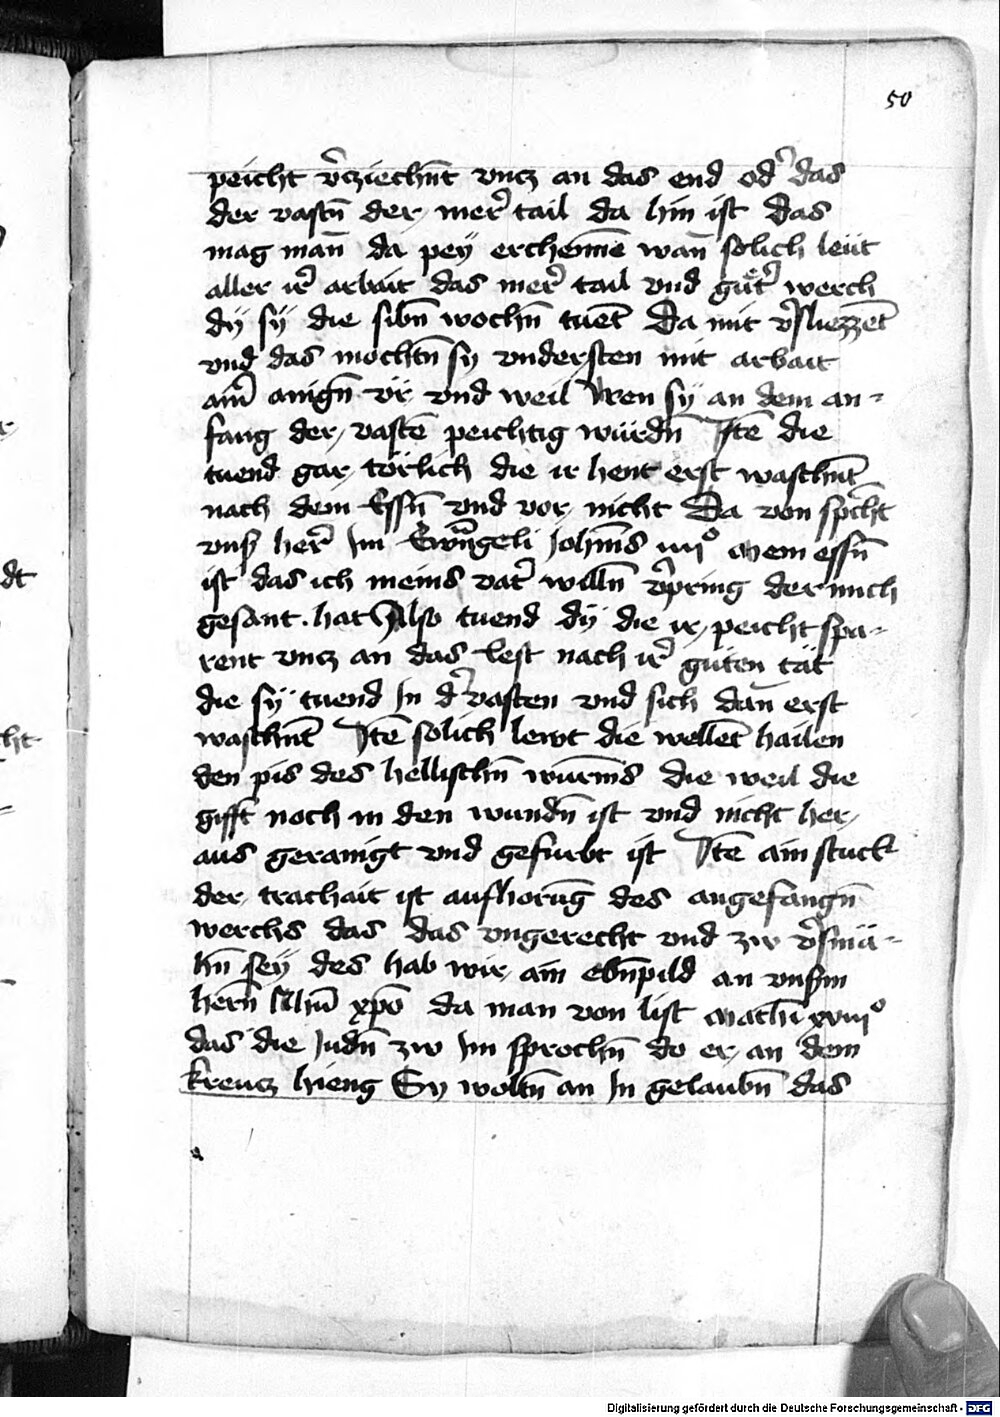 50
peicht v̾cziechn̄t vncz an das end od̾ das
der vastn̄ der mer̾ tail da hin ist das
mag man̄ da pey erchennē wan̄ solich leüt
aller ir̾ arbait das mer̾ tail vnd gůt̾ werch
dÿ sÿ die sibn̄ wochn̄ tuet̄ Da mit v̾sliezzet̄
vnd das mochtn̄ sy vndersten mit arbait
ain̾ ainign̄ vr vnd weil Wen sÿ an dem an-
fang der vastē peichtig würdn̄ Itē die
tuend gar törlich die ir hent erst waschn̄t
nach dem Essn̄ vnd vor nicht Da von spch̄t
vnß her̾ Im Ewn̄geli John̄is iiiiº Mein essn̄
ist das ich meins vat̾ willn̄ v̾pring der mich
gesant. hat Also tuend dÿ die ir peicht spa-
rent vncz an das lest nach ir̾ güten tät
die sÿ tuend In d̾ vasten vnd sich dan̄ erst
waschn̄t Itē solich lewt die wellet̄ hailen
den pis des hellischn̄ wurm̄s die weil die
gifft noch in den wundn̄ ist vnd nicht her
aus gerainigt vnd gefurbt ist Itē ain stuck
der trachait ist aufhorūg des angefangn̄
werchs das das vngerecht vnd zw v̾smä-
hn̄ sey des hab wir ain ebn̄pild an vnßm
hern̄ Jh̄u xp̄o da man von list Mathī xviiiº
das die Judn̄ zw Im sprochn̄ do er an dem
kreucz hieng Sy woltn̄ an In gelaubn̄ das
Digitalisierung gefördert durch die Deutsche Forschungsgemeinschaft - DFG